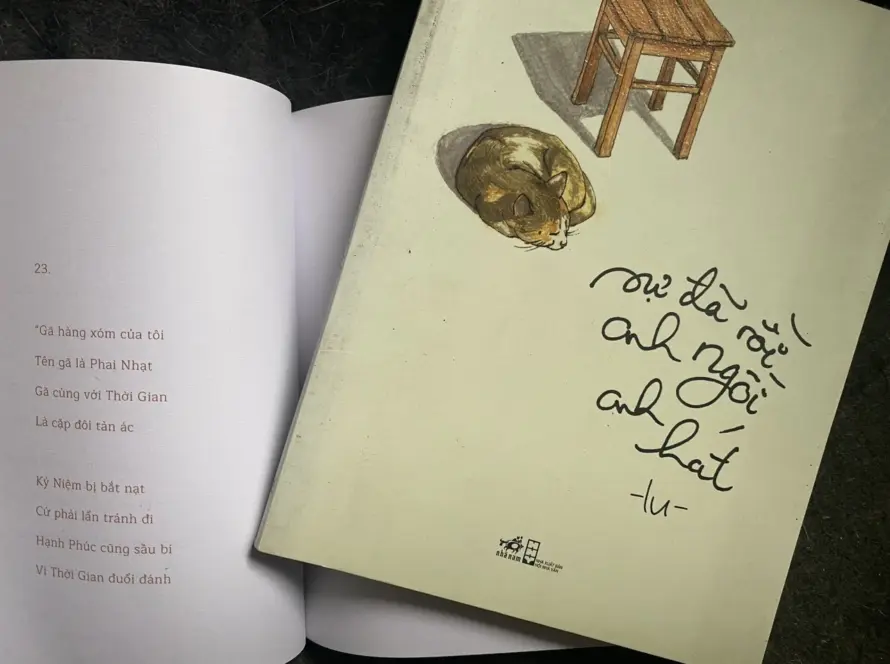 23.
"Gã hàng xóm của tôi
Tên gã là Phai Nhạt
Gã cùng với Thời Gian
Là cặp đôi tàn ác
Ký Niệm bị bắt nạt
Cứ phải lẩn tránh đi
Hạnh Phúc cũng sầu bi
Vì Thời Gian đuổi đánh
sự đã rồi
anh ngồi
anh hát
-lu-
nhã nam
NHÀ XUẤT BẢN
HỘI NHÀ VĂN